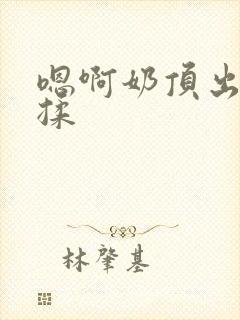 嗯啊奶頂出
揉
林肇基